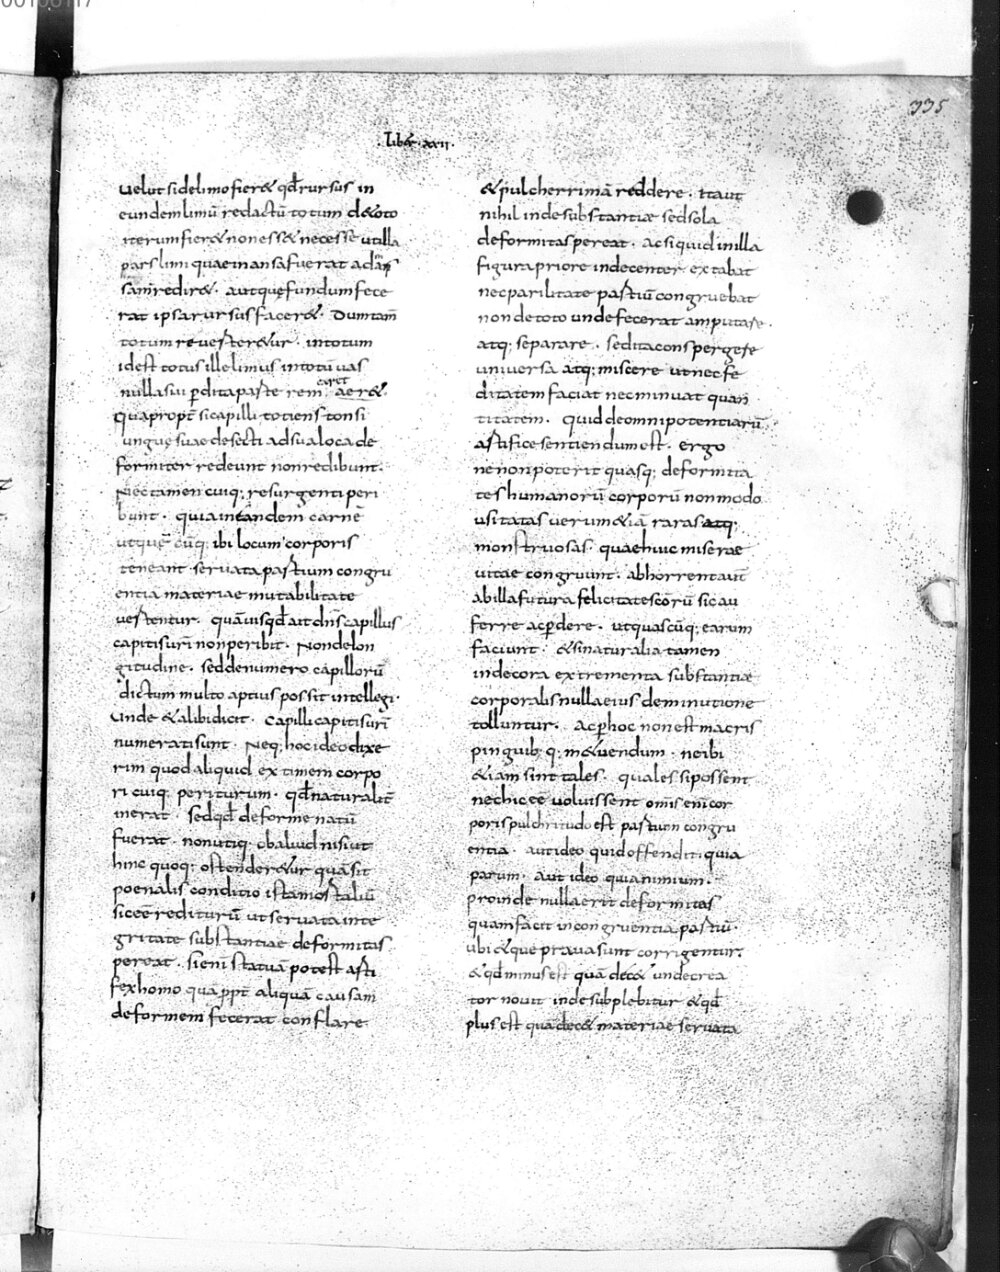 00100117
335
. liber . xxii .
velut si de limo fieret qđ rursus in
eundem limū redactū totum de toto
iterum fieret non esset necesse ut illa
pars limi quae in ansa fuerat ad an
sam rediret . aut quę fundum fece
rat ipsa rursus faceret . Dum tam̄
totum reverteretur . in totum
id est totus ille limus in totū vas
nulla sui ꝑdita parte rem
caret
aeret .
Quapropt̄ si capilli totiens tonsi
unguesve desecti ad sua loca de
formiter redeunt non redibunt .
Nec tamen cuiq; resurgenti peri
bunt . quia in eandem carnē
ut quę cūq; ibi locum corporis
teneant servata partium congru
entia materiae mutabilitate
vertentur . quāvis qđ ait dn̄s capillus
capitis ur̄i non peribit . Non de lon
gitudine . sed de numero capillorū
dictum multo aptius possit intellegi .
Unde & alibi dicit . Capilli capitis ur̄i
numerati sunt . Neq; hoc ideo dixe
rim quod aliquid extimem corpo
ri cuiq; periturum . qđ naturalit̄
inerat . sed qđ deforme natū
fuerat . non utiq; ob aliud nisi ut
hinc quoq; ostenderetur quā sit
poenalis conditio ista mortaliū
sic eē rediturū ut servata inte
gritate substantiae deformitas
pereat . si eni statuā potest arti
fex homo quā ꝓpt̄ aliquā causam
deformem fecerat conflare
& pulcherrimā reddere . Ita ut
nihil inde substantiae sed sola
deformitas pereat . ac si quid in illa
figura priore indecenter extabat
nec parilitate partiū congruebat
non de toto unde fecerat amputare .
atq; separare . sed ita conspergere
universa atq; miscere ut nec fe
ditatem faciat nec minuat quan
titatem . quid de omnipotenti
artifice sentiendum est . Ergo
ne non poterit quasq; deformita
tes humanorū corporū non modo
usitatas verum & iā raras atq;
monstruosas quae huic miserae
vitae congruunt . abhorrent aut̄
ab illa futura felicitate scōrū sic au
ferre ac ꝑdere . ut quascūq; earum
faciunt . & si naturalia tamen
indecora extrementa substantiae
corporalis nulla eius deminutione
tolluntur . Ac ꝑ hoc non est macris
pinguib; q; metuendum . ne ibi
etiam sint tales . quales si possent
nec hic eē voluissent omīs enī cor
poris pulchritudo est partium congru
entia . aut ideo quid offendit quia
parum . aut ideo quia nimium .
proinde nulla erit deformitas
quam facit incongruentia partiū .
ubi & que prava sunt corrigentur .
& qđ minus est quā decet unde crea
tor novit inde subplebitur & qđ
plus est quā decet materiae servata